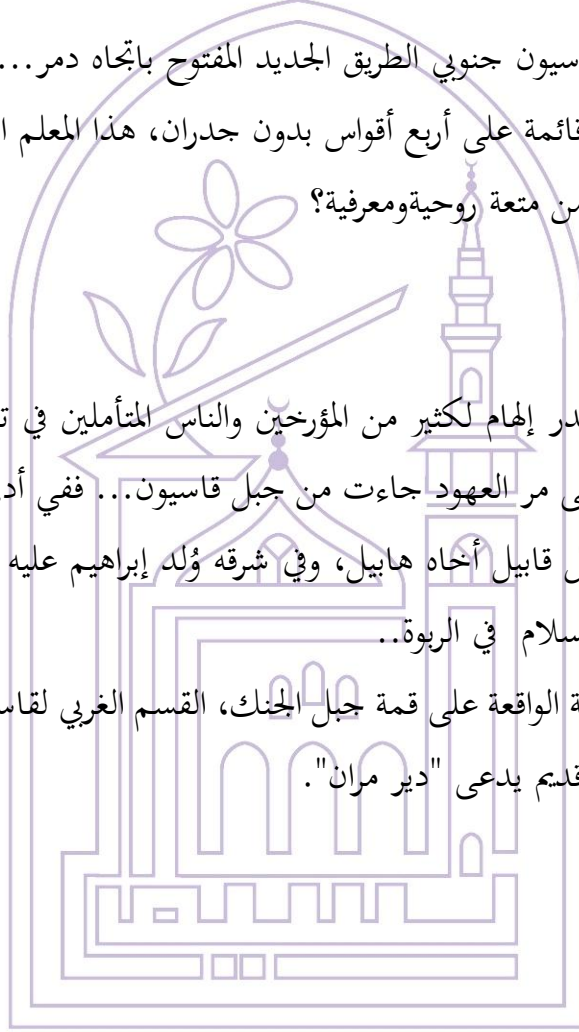 سيون جنوبي الطريق الجديد المفتوح باتجاه دمر...
قائمة على أربع أقواس بدون جدران، هذا المعلم ا
من متعة روحيةومعرفية؟
در إلهام لكثير من المؤرخين والناس المتأملين في ت
ى مر العهود جاءت من جبل قاسيون... ففي أد
ل قابيل أخاه هابيل، وفي شرقه وُلد إبراهيم عليه
سلام في الربوة..
ة الواقعة على قمة جبل الجنك، القسم الغربي لقاس
قديم يدعى "دير مران".